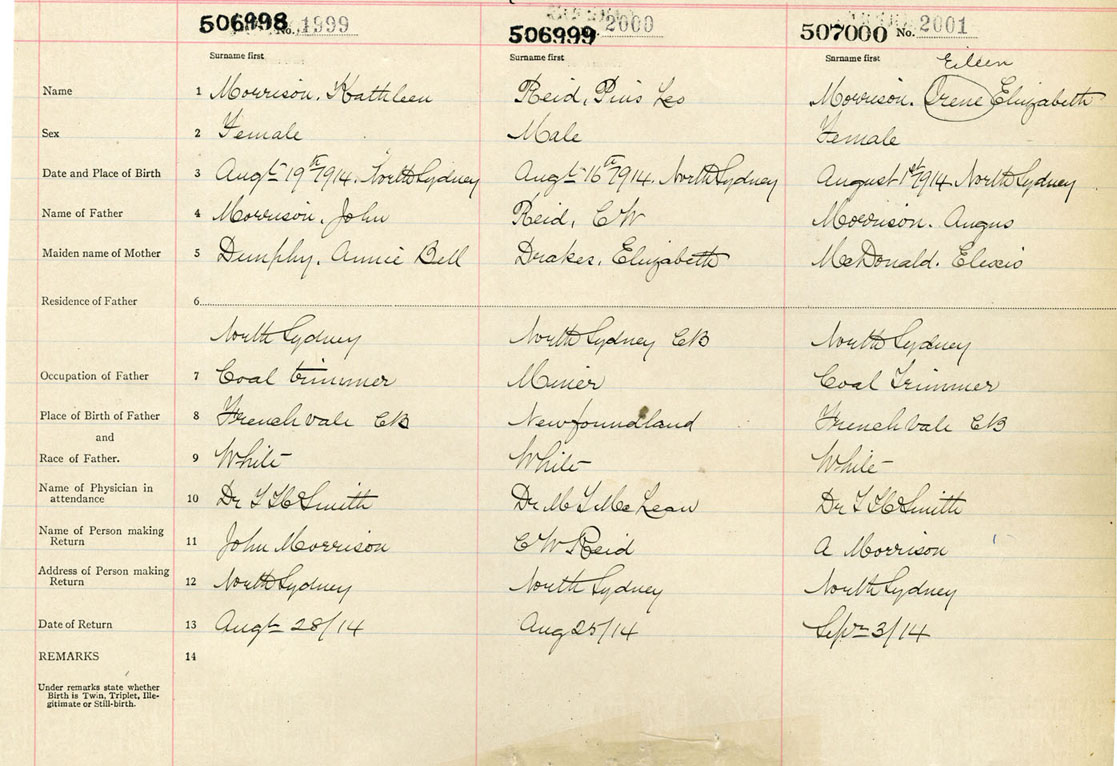 506998 No. 1999
506999 2000
507000 No. 2001
Surname first
Surname first
Surname first
Eileen
Name 1 Morrison, Kathleen
Reid, Pius Leo
Morrison. Irene Elizabeth
Sex 2 Female
Male
Female
Date and Place of Birth 3 Augt 19th/1914. North Sydney
Augt 16th/1914. North Sydney
August 1st/1914 North Sydney
Name of Father 4 Morrison, John
Reid, C W
Morrison. Angus
Maiden name of Mother 5 Dunphy, Annie Bell
Drakes, Elizabeth
McDonald. Elexis
Residence of Father 6
North Sydney
North Sydney CB
North Sydney
Occupation of Father 7 Coal trimmer
Miner
Coal Trimmer
Place of Birth of Father 8 French Vale CB
Newfoundland
French Vale CB
and
Race of Father. 9 White
White
White
Name of Physician in
attendance 10 Dr Smith
Dr McLean
Dr Smith
Name of Person making
Return 11 John Morrison
C W Reid
A Morrison
Address of Person making
Return 12 North Sydney
North Sydney
North Sydney
Date of Return 13 Augt 28/14
Aug 25/14
Sepr 3/14
REMARKS 14
Under remarks state whether
Birth is Twin, Triplet, Ille-
gitimate or Still-birth.